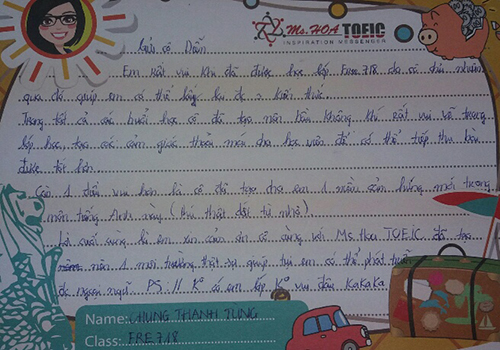 Ms. HOA TOEIC
INSPIRATION MESSENGER
Gửi cô Dần
Em rất vui khi đã được học lớp Fre 718 do cô chủ nhiệm
qua đó giúp em có thể lấy lại đc 2 kiến thức
Trong tất cả các buổi học cô đã tạo nên bầu không khí rất vui vẻ trong
lớp học, tạo các cảm giác thoải mái cho học viên để có thể tiếp thu bài
được tốt hơn.
Còn 1 điều vui hơn là cô đã tạo cho em 1 niềm cảm hứng mới trong
môn tiếng Anh
Lời cuối cùng là em xin cảm ơn cô cùng với Ms Hoa TOEIC đã tạo
nên 1 môi trường thật sự giúp tụi em có thể phát triển
đc ngoại ngữ PS // Ko có em lớp Ko vui đâu KaKaKa
Name: HÙNG THANH TÙNG
Class: FRE 718